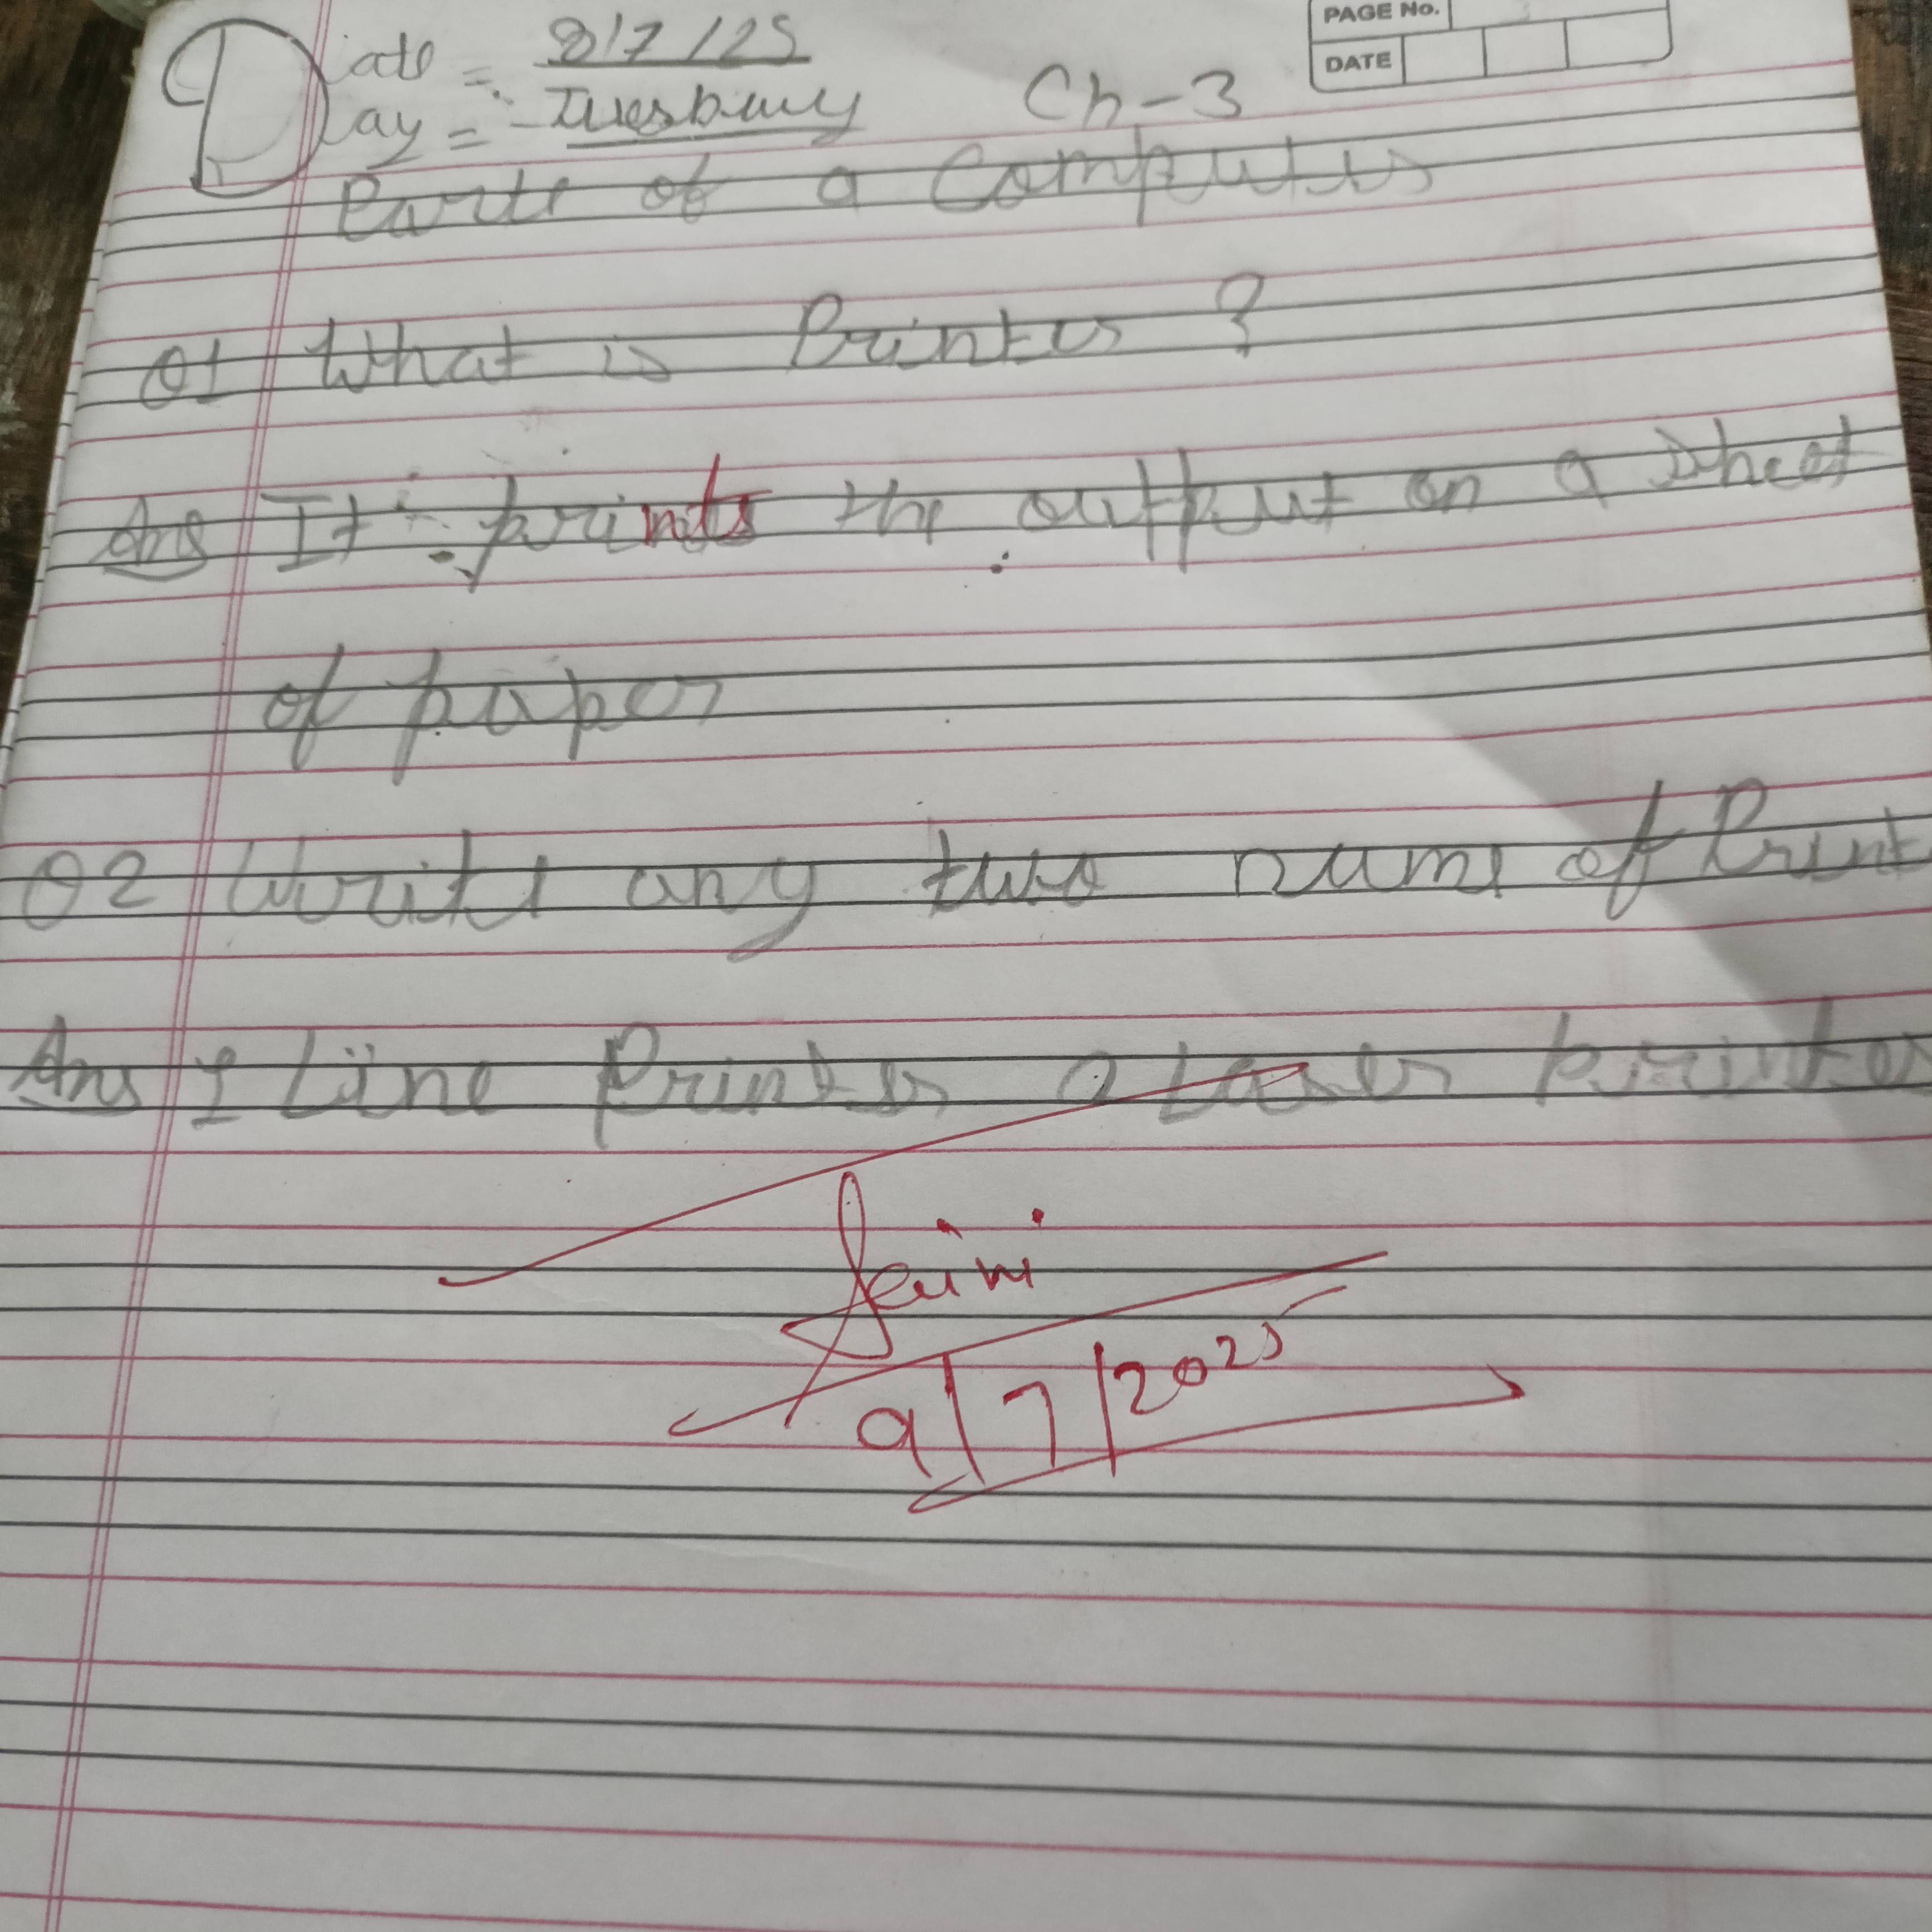 PAGE No.
DATE
Date = 8/7/25
Day = Tuesbay
Ch-3
Parts of a Computer
Q1 What is Printer ?
Ans It prints the output on a sheet
of paper
Q2 Write any two name of Print
Ans 1 Line Printer 2 Laser printer
9/7/2025